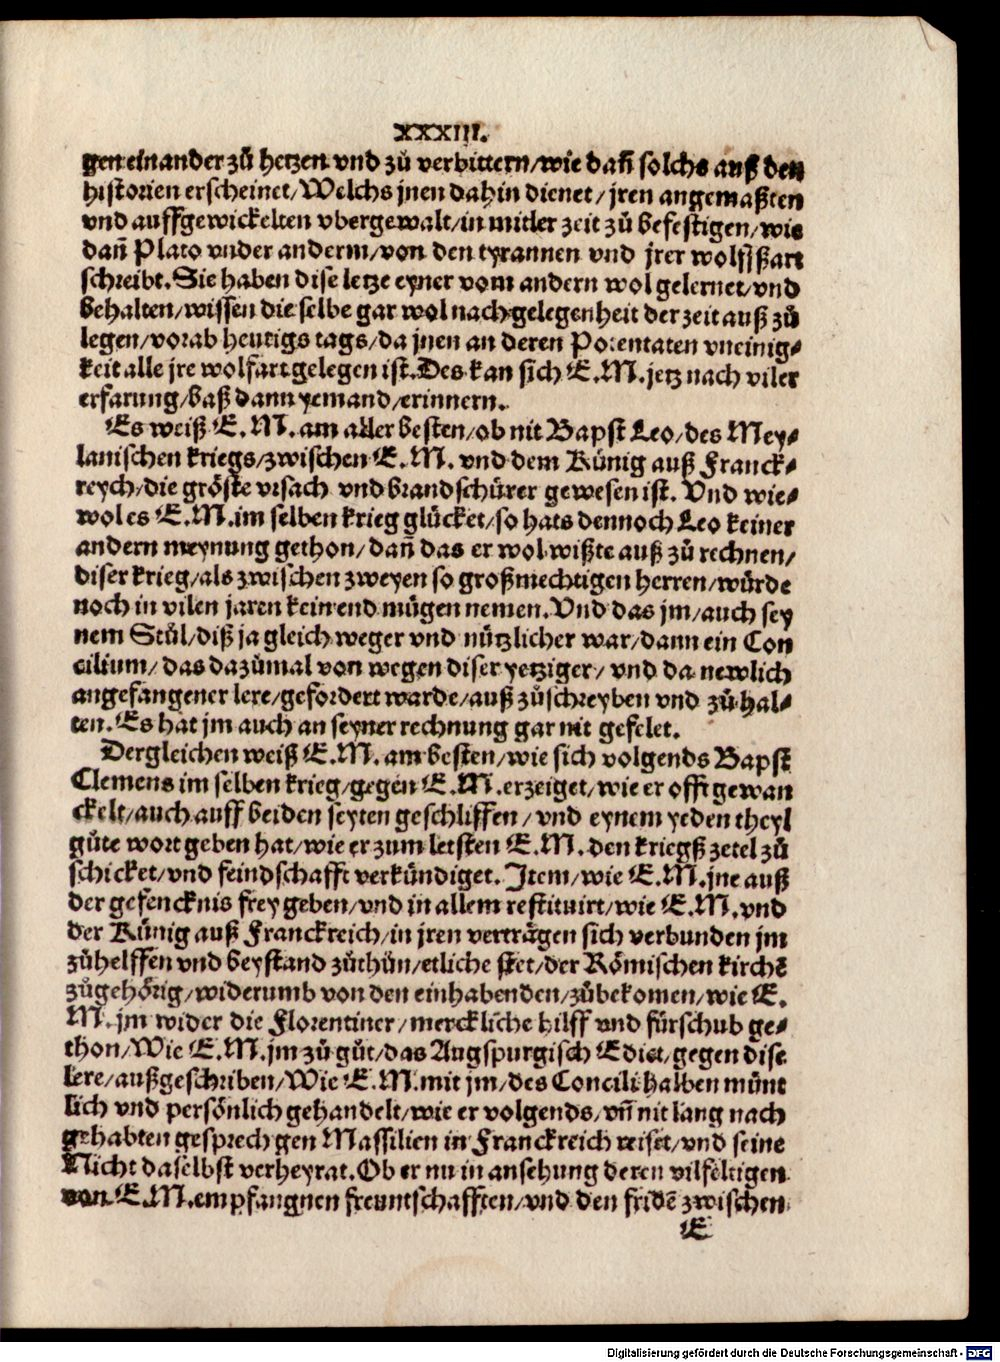 XXXIII.
gen einander zů hetzen vnd zů verbittern/wie dañ solchs auß den
historien erscheinet/Welchs jnen dahin dienet/jren angemaßten
vnd auffgewickelten vbergewalt/in mitler zeit zů befestigen/wie
dañ Plato vnder anderm/von den tyrannen vnd jrer wolffßart
schreibt. Sie haben dise letze eyner vom andern wol gelernet/vnd
behalten/wissen die selbe gar wol nach gelegenheit der zeit auß zů
legen/vorab heutigs tags/da jnen an deren Potentaten vneinig⸗
keit alle jre wolfart gelegen ist. Des kan sich E.M. jetz nach viler
erfarung/baß dann yemand/erinnern.
Es weiß E.M. am aller besten/ob nit Bapst Leo/des Mey⸗
lanischen kriegs/zwischen E.M. vnd dem Künig auß Franck⸗
reych/die gröste vrsach vnd brandschürer gewesen ist. Vnd wie⸗
wol es E.M. im selben krieg glücket/so hats dennoch Leo keiner
andern meynung gethon/dañ das er wol wißte auß zů rechnen/
diser krieg/als zwischen zweyen so großmechtigen herren/würde
noch in vilen jaren kein end mügen nemen. Vnd das jm/auch sey
nem Stůl/diß ja gleich weger vnd nützlicher war/dann ein Con
cilium/das dazůmal von wegen diser yetziger/vnd da newlich
angefangener lere/gefordert warde/auß zůschreyben vnd zů hal⸗
ten. Es hat jm auch an seyner rechnung gar nit gefelet.
Dergleichen weiß E.M. am besten/wie sich volgends Bapst
Clemens im selben krieg/gegen E.M. erzeiget/wie er offt gewan
ckelt/auch auff beiden seyten geschliffen/vnd eynem yeden theyl
gůte wort geben hat/wie er zum letsten E.M. den kriegß zetel zů
schicket/vnd feindschafft verkündiget. Item/wie E.M. jne auß
der gefencknis frey geben/vnd in allem restituirt/wie E.M. vnd
der Künig auß Franckreich/in jren verträgen sich verbunden jm
zůhelffen vnd beystand zůthůn/etliche stet/der Römischen kirchē
zůgehörig/widerumb von den einhabenden/zůbekomen/wie E.
M. jm wider die Florentiner/merckliche hilff vnd fürschub ge⸗
thon/Wie E.M. jm zů gůt/das Augspurgisch Edict/gegen dise
lere/außgeschriben/Wie E.M. mit jm/des Concili halben münt
lich vnd persönlich gehandelt/wie er volgends/vñ nit lang nach
gehabten gesprech gen Massilien in Franckreich reiset/vnd seine
Nicht daselbst verheyrat. Ob er nu in ansehung deren vilfeltigen
von E.M. empfangnen freuntschafften/vnd den fridē zwischen
E
Digitalisierung gefördert durch die Deutsche Forschungsgemeinschaft - DFG